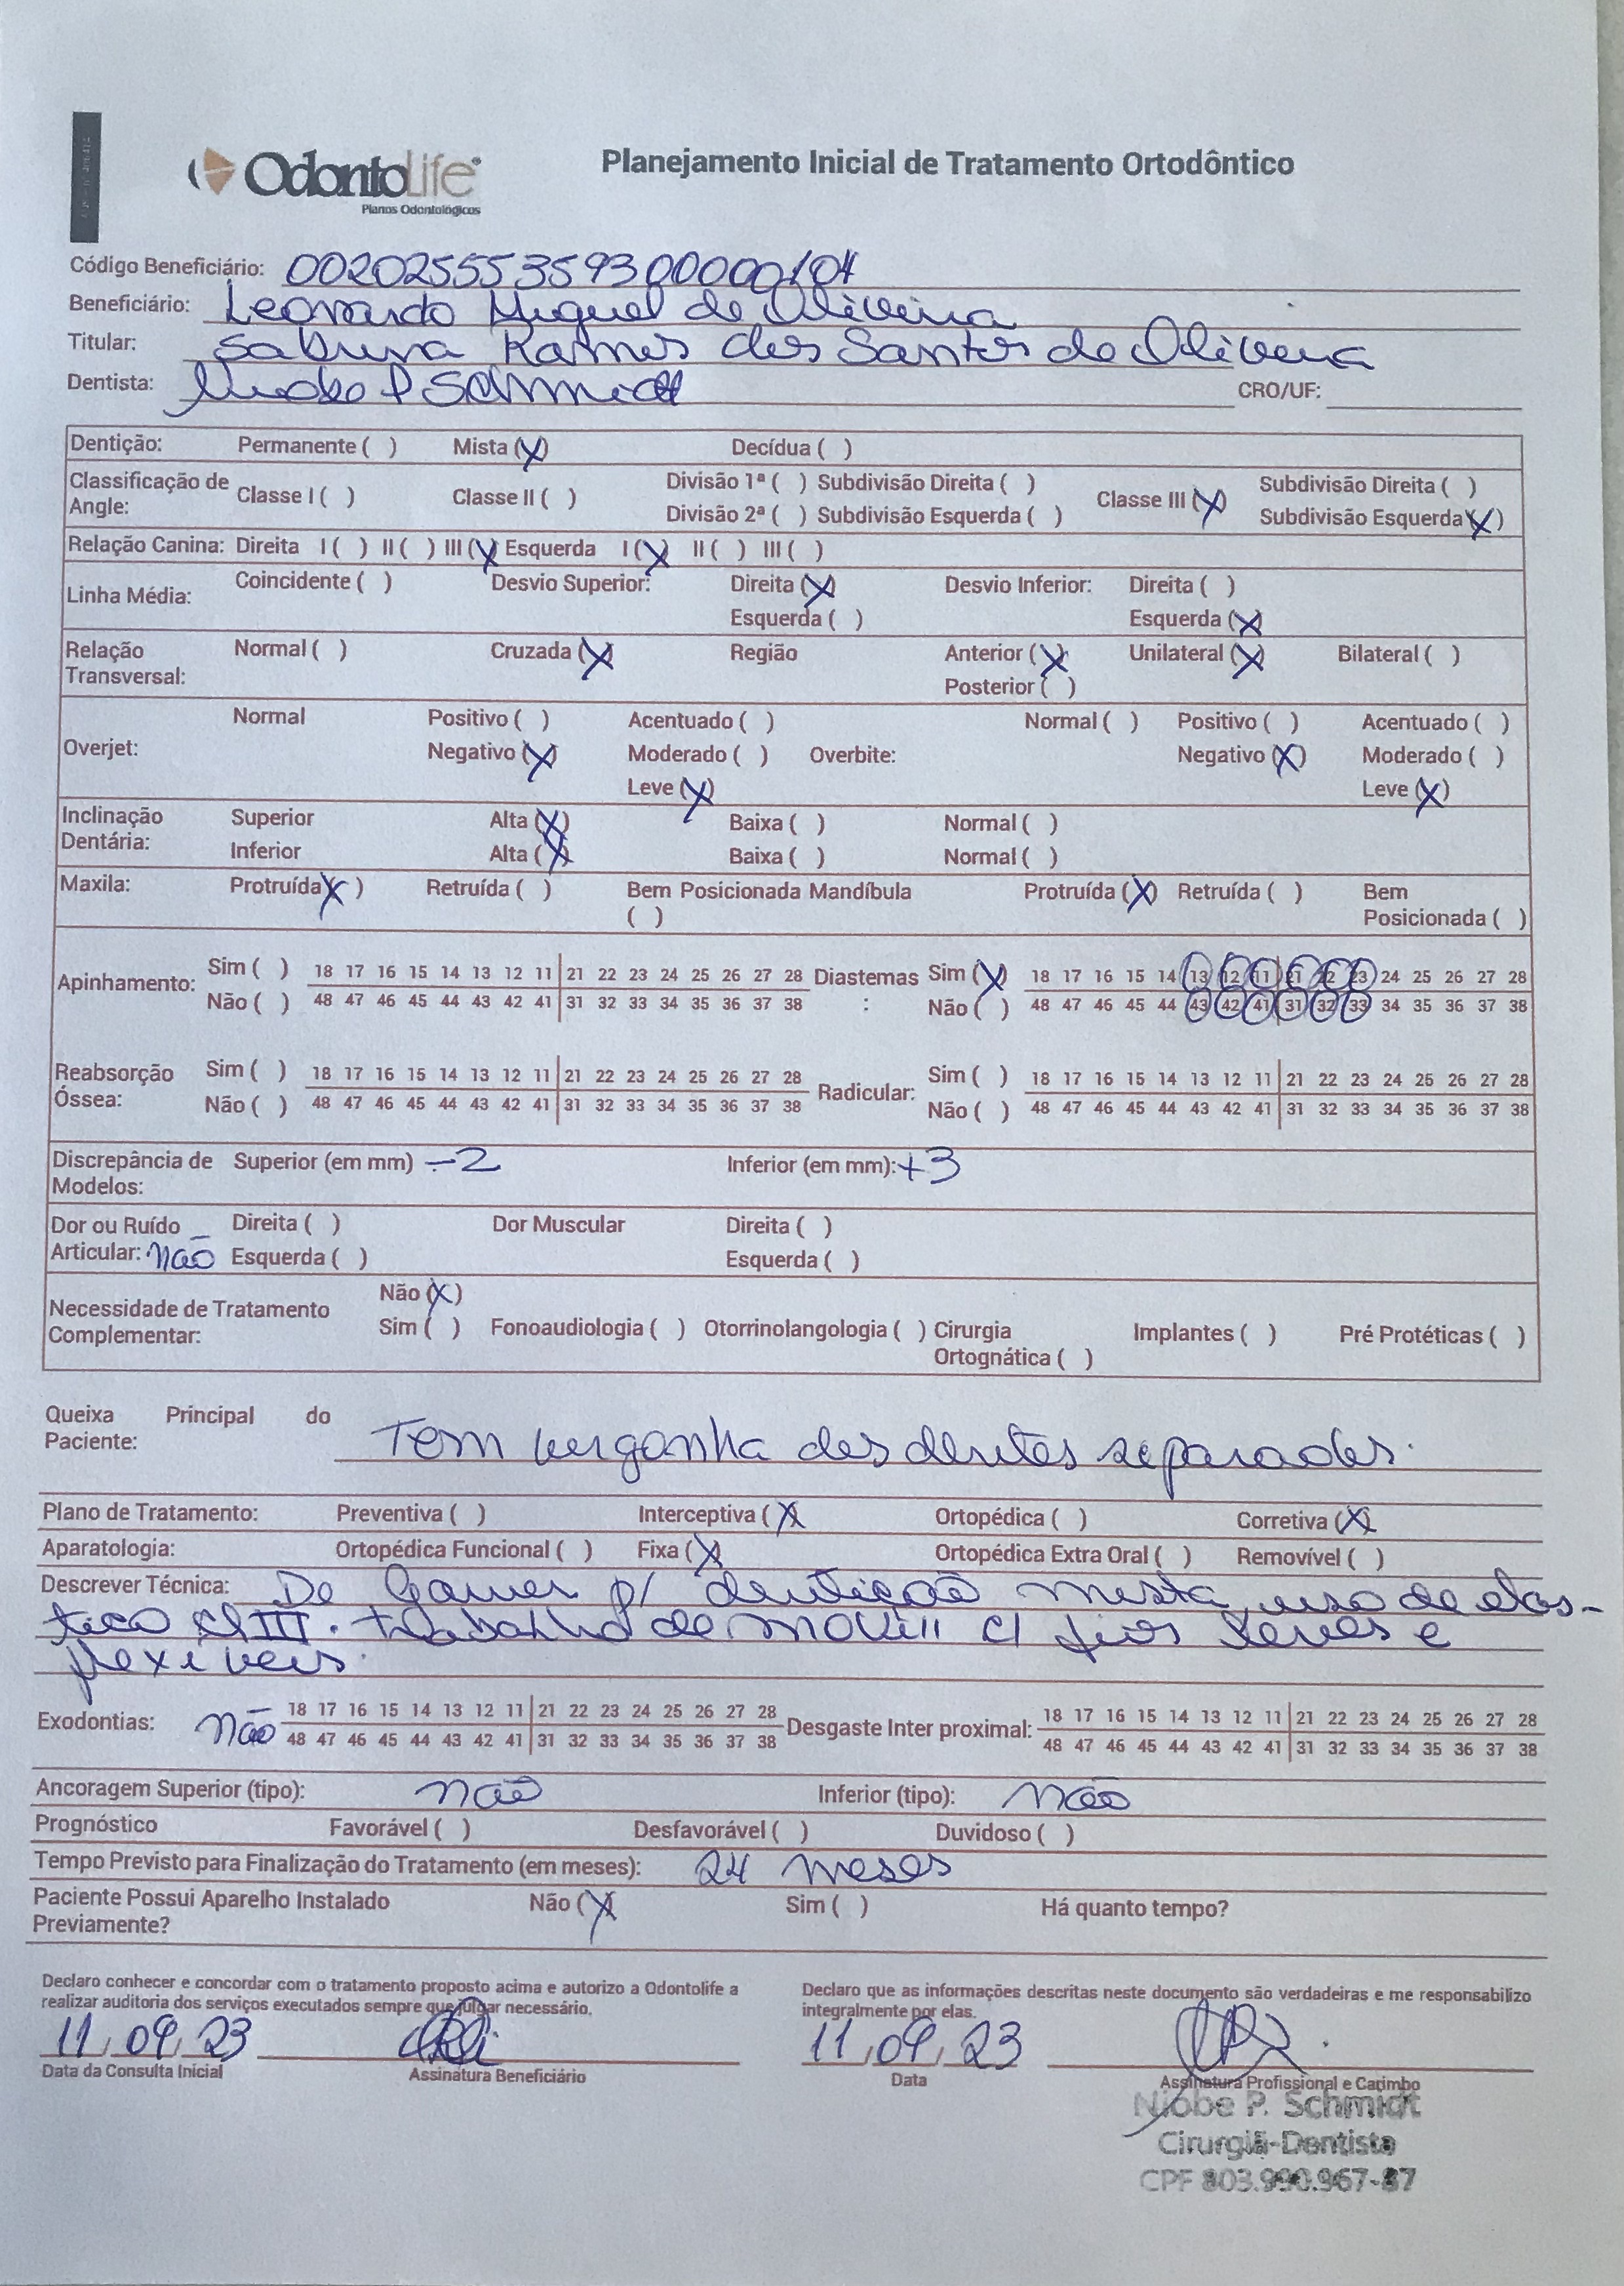 OdontoLife
Planos Odontológicos
Planejamento Inicial de Tratamento Ortodôntico
Código Beneficiário: 00202555359300000104
Beneficiário: Leonardo Miguel de Oliveira
Titular: Sabrina Ramos dos Santos de Oliveira
Dentista: Niobe P Schmidt CRO/UF:
Dentição: Permanente ( ) Mista (X) Decídua ( )
Classificação de Angle: Classe I ( ) Classe II ( ) Divisão 1ª ( ) Subdivisão Direita ( ) Classe III (X) Subdivisão Direita ( )
Divisão 2ª ( ) Subdivisão Esquerda ( ) Subdivisão Esquerda (X)
Relação Canina: Direita I ( ) II ( ) III (X) Esquerda I (X) II ( ) III ( )
Linha Média: Coincidente ( ) Desvio Superior: Direita (X) Desvio Inferior: Direita ( )
Esquerda ( ) Esquerda (X)
Relação Transversal: Normal ( ) Cruzada (X) Região Anterior (X) Unilateral (X) Bilateral ( )
Posterior ( )
Overjet: Normal Positivo ( ) Acentuado ( ) Overbite: Normal ( ) Positivo ( ) Acentuado ( )
Negativo (X) Moderado ( ) Negativo (X) Moderado ( )
Leve (X) Leve (X)
Inclinação Dentária: Superior Alta (X) Baixa ( ) Normal ( )
Inferior Alta (X) Baixa ( ) Normal ( )
Maxila: Protruída (X) Retruída ( ) Bem Posicionada ( ) Mandíbula Protruída (X) Retruída ( ) Bem Posicionada ( )
Apinhamento: Sim ( ) 18 17 16 15 14 13 12 11 21 22 23 24 25 26 27 28 Diastemas : Sim (X) 18 17 16 15 14 13 12 11 21 22 23 24 25 26 27 28
Não ( ) 48 47 46 45 44 43 42 41 31 32 33 34 35 36 37 38 Não ( ) 48 47 46 45 44 43 42 41 31 32 33 34 35 36 37 38
Reabsorção Óssea: Sim ( ) 18 17 16 15 14 13 12 11 21 22 23 24 25 26 27 28 Radicular: Sim ( ) 18 17 16 15 14 13 12 11 21 22 23 24 25 26 27 28
Não ( ) 48 47 46 45 44 43 42 41 31 32 33 34 35 36 37 38 Não ( ) 48 47 46 45 44 43 42 41 31 32 33 34 35 36 37 38
Discrepância de Modelos: Superior (em mm) -2 Inferior (em mm): +3
Dor ou Ruído Articular: não Direita ( ) Dor Muscular Direita ( )
Esquerda ( ) Esquerda ( )
Necessidade de Tratamento Complementar: Não (X)
Sim ( ) Fonoaudiologia ( ) Otorrinolangologia ( ) Cirurgia Ortognática ( ) Implantes ( ) Pré Protéticas ( )
Queixa Principal do Paciente: Tem vergonha dos dentes separados.
Plano de Tratamento: Preventiva ( ) Interceptiva (X) Ortopédica ( ) Corretiva (X)
Aparatologia: Ortopédica Funcional ( ) Fixa (X) Ortopédica Extra Oral ( ) Removível ( )
Descrever Técnica: De p/ dentição mista, uso de elás-
tico Cl III. trabalho de c/ fios leves e
flexíveis.
Exodontias: não 18 17 16 15 14 13 12 11 21 22 23 24 25 26 27 28 Desgaste Inter proximal: 18 17 16 15 14 13 12 11 21 22 23 24 25 26 27 28
48 47 46 45 44 43 42 41 31 32 33 34 35 36 37 38 48 47 46 45 44 43 42 41 31 32 33 34 35 36 37 38
Ancoragem Superior (tipo): não Inferior (tipo): não
Prognóstico Favorável ( ) Desfavorável ( ) Duvidoso ( )
Tempo Previsto para Finalização do Tratamento (em meses): 24 meses
Paciente Possui Aparelho Instalado Previamente? Não (X) Sim ( ) Há quanto tempo?
Declaro conhecer e concordar com o tratamento proposto acima e autorizo a Odontolife a
realizar auditoria dos serviços executados sempre que julgar necessário.
Declaro que as informações descritas neste documento são verdadeiras e me responsabilizo
integralmente por elas.
11/09/23 11/09/23
Data da Consulta Inicial Assinatura Beneficiário Data Assinatura Profissional e Carimbo
Niobe P. Schmidt
Cirurgiã-Dentista
CPF 803.990.967-87